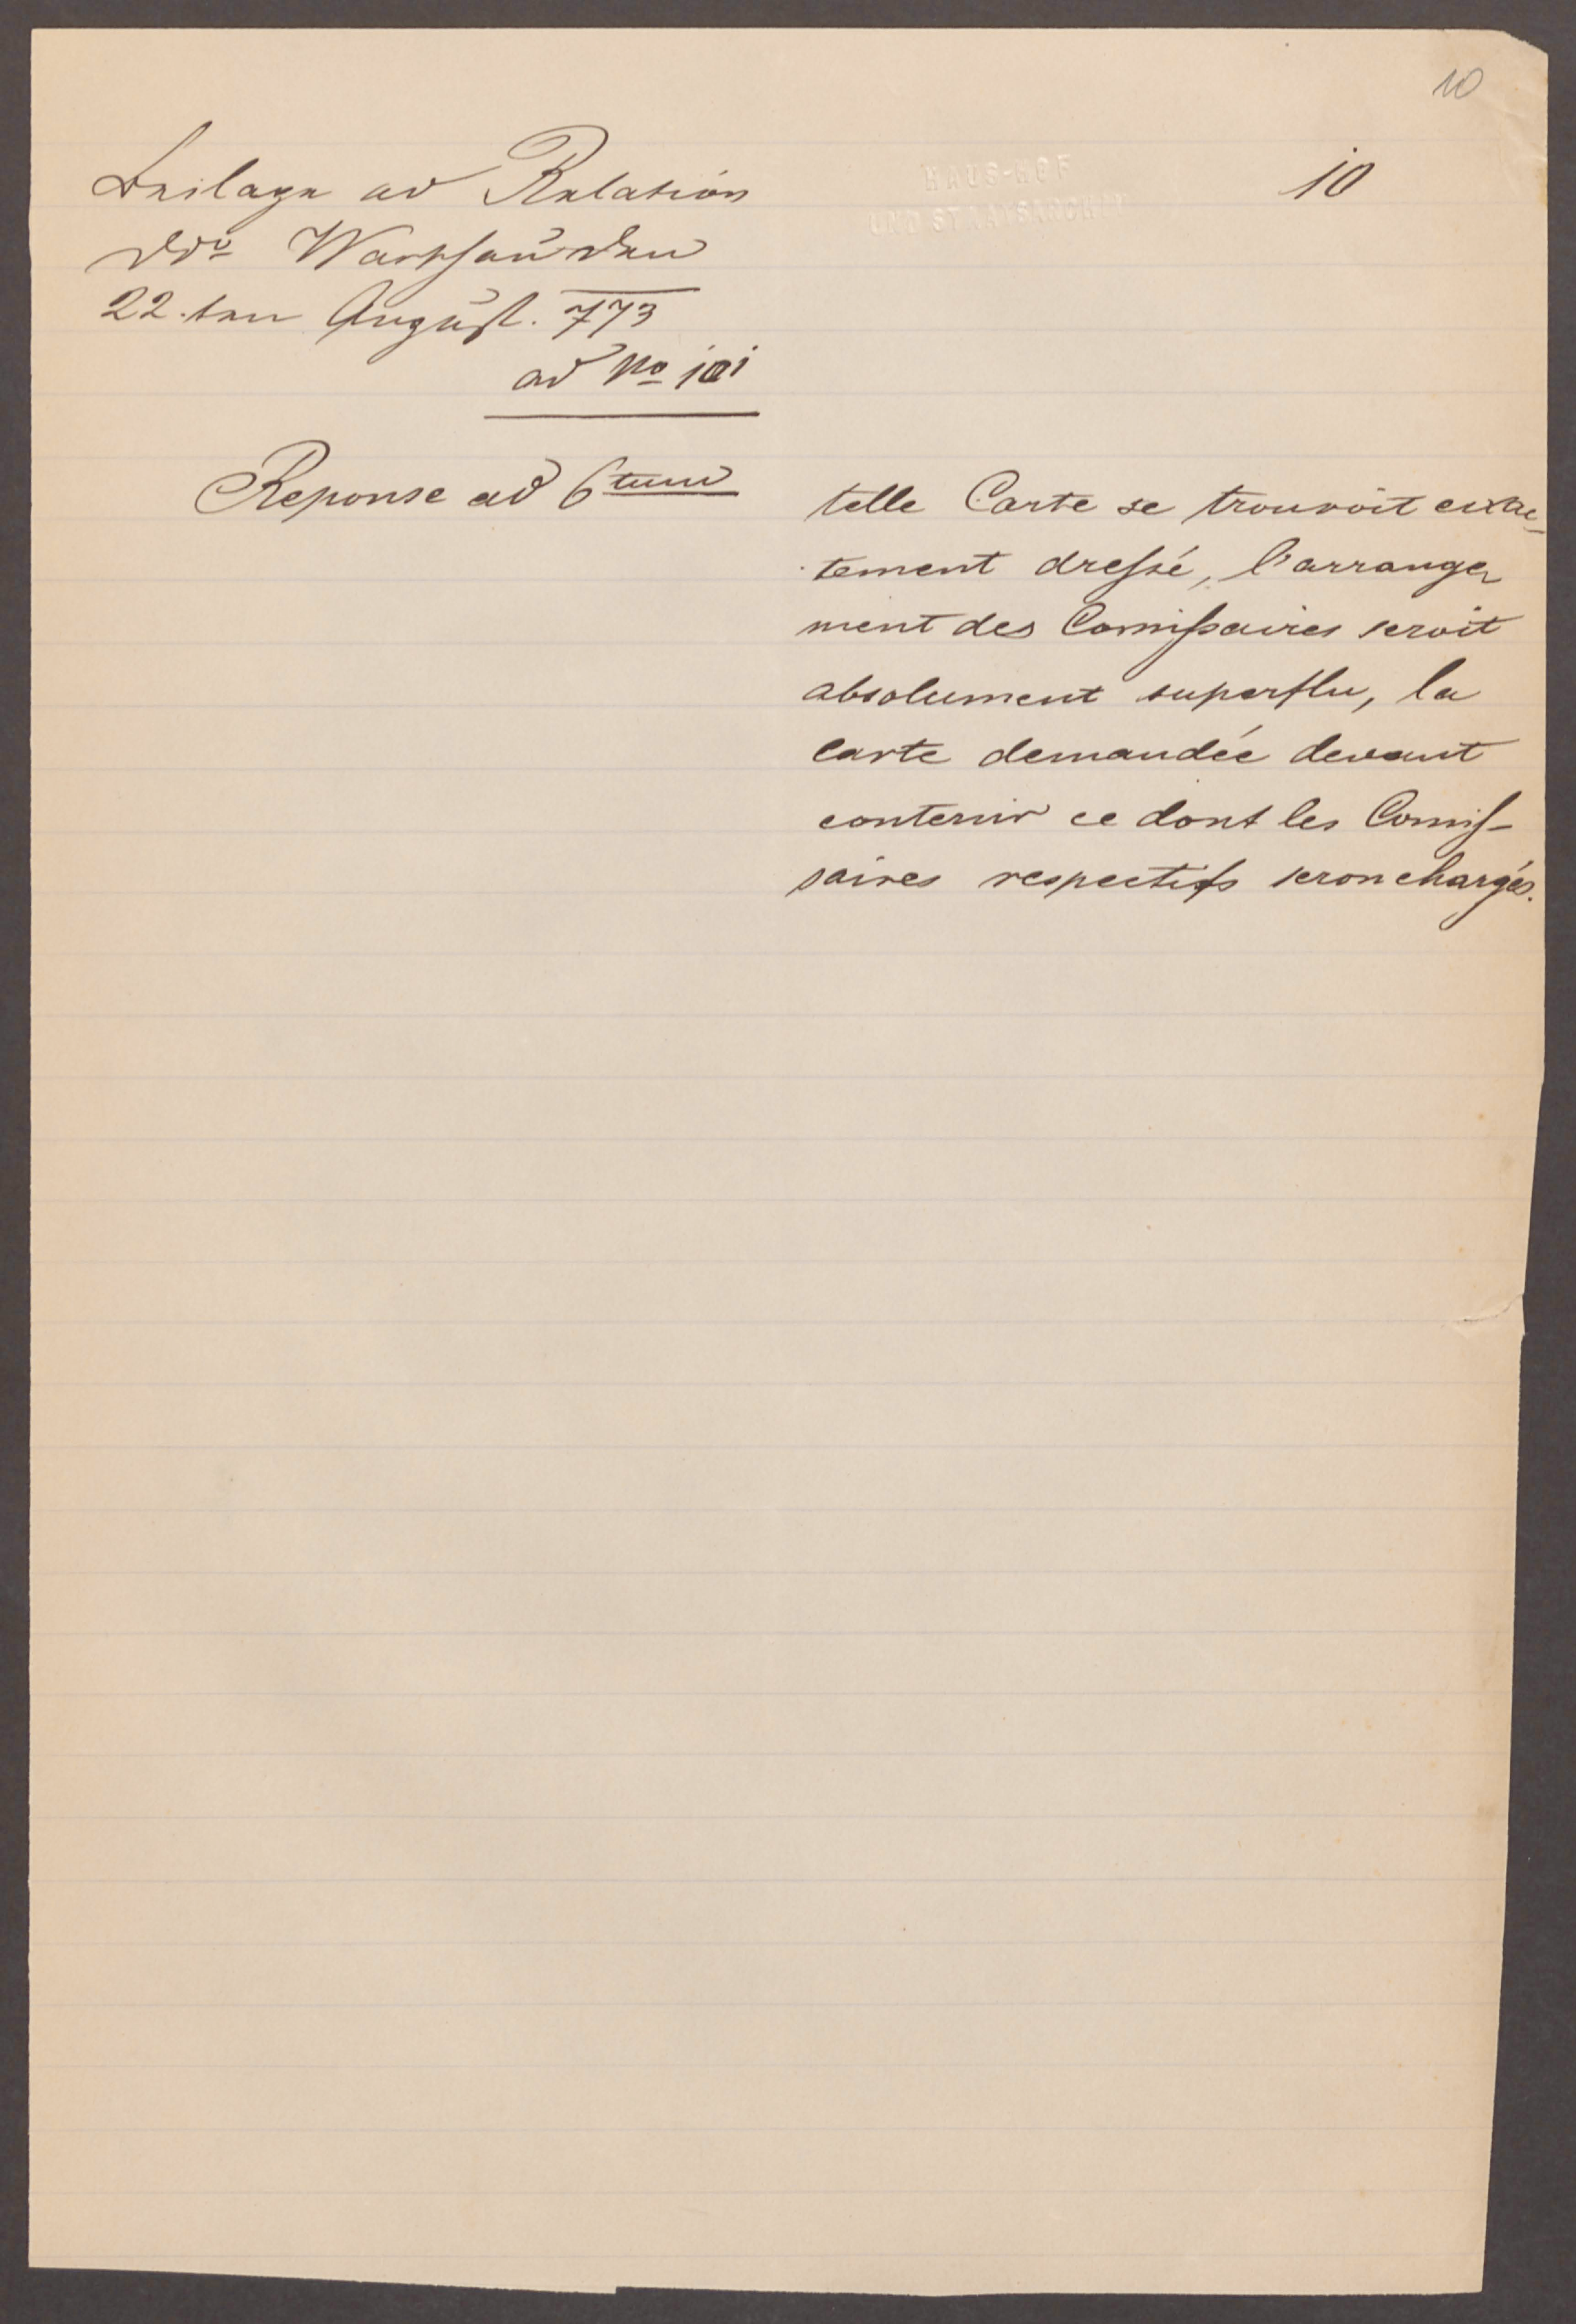 10
10
HAUS-HOF
UND STAATSARCHIV
Beilage ad Relation
ddo Warschau den
22.ten August. 773
ad No 101
Reponse ad 6tum
telle Carte se trouvoit exac-
tement dressé, l'arrange
ment des Comissaires seroit
absolument superflu, la
carte demandée devant
contenir ce dont les Comis-
saires respectifs seron chargés.